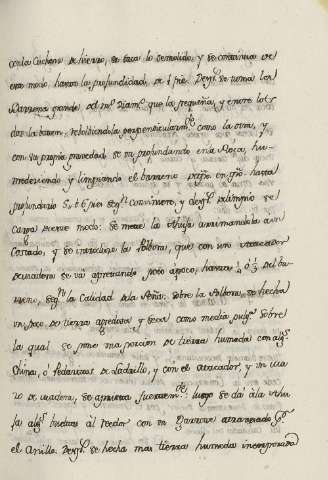 con la Cuchara de hierro, se saca lo demolido, y se continúa de
este modo, hasta la profundidad, de 1 pie. Despˢ. se toma la
Barrena grande del mº. diamº. que la pequeña, y entre los
dos la baten, volviendola perpendicularmᵗᵉ. como la otra, y
con su propia gravedad se va profundando en la Roca, hu-
medeciendo y limpiando el barreno hasta
profundarlo 5, ó 6 pies segⁿ. conviniere, y despˢ. de limpio se
Carga de este modo. Se mete la abuja arrimandola a un
Costado, y se introduce la Polvora, que con un atacador
de madera se va apretando poco apoco, hasta ¼ ó ⅓ del ba-
rreno, segⁿ. la Calidad de la Peña. Sobre la Polvora, se hecha
un poco de tierra y seca como media pulgᵃ. sobre
la qual se pone una porcion de tierra humeda con algˢ.
Chinas, ó pedacitos de ladrillo, y con el atacador, y un ma-
zo de madera, se aprieta fuertemᵗᵉ. luego se dá á la abu-
ja algˢ. bueltas al rededor con un atravesado pʳ.
el anillo. Despˢ. se hecha mas tierra humeda incorporada